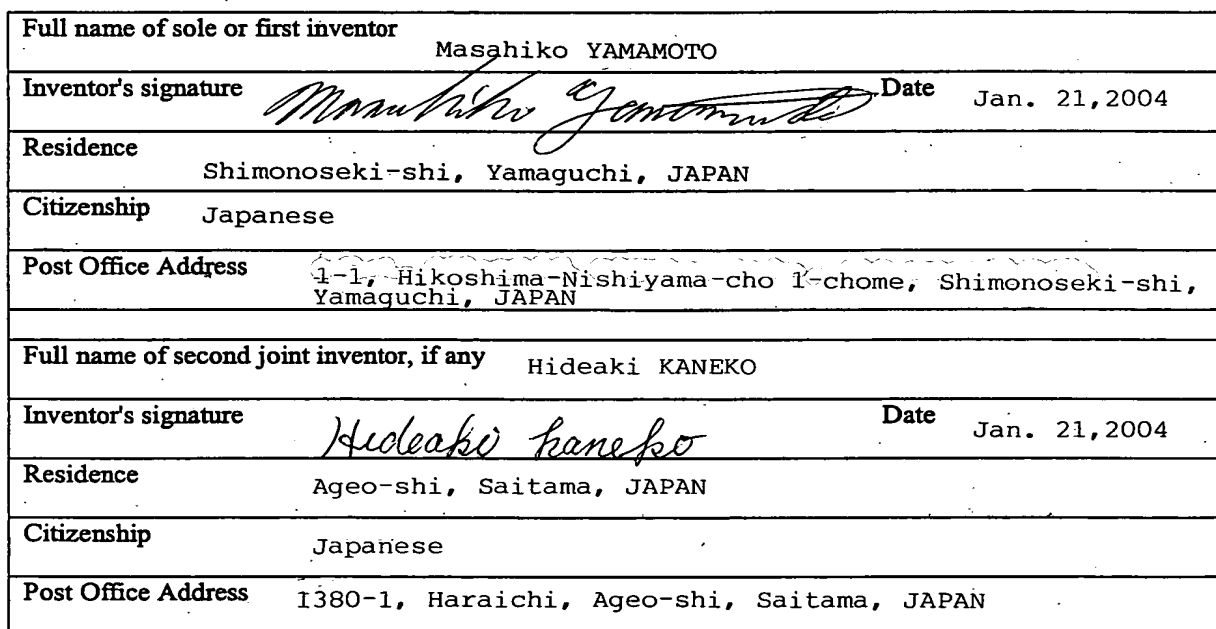 Full name of sole or first inventor
Masahiko YAMAMOTO
Inventor's signature Masahiko Yamamoto Date Jan. 21,2004
Residence
Shimonoseki-shi, Yamaguchi, JAPAN
Citizenship Japanese
Post Office Address 1-1, Hikoshima-Nishiyama-cho 1-chome, Shimonoseki-shi,
Yamaguchi, JAPAN
Full name of second joint inventor, if any Hideaki KANEKO
Inventor's signature Hideaki Kaneko Date Jan. 21,2004
Residence Ageo-shi, Saitama, JAPAN
Citizenship Japanese
Post Office Address 1380-1, Haraichi, Ageo-shi, Saitama, JAPAN